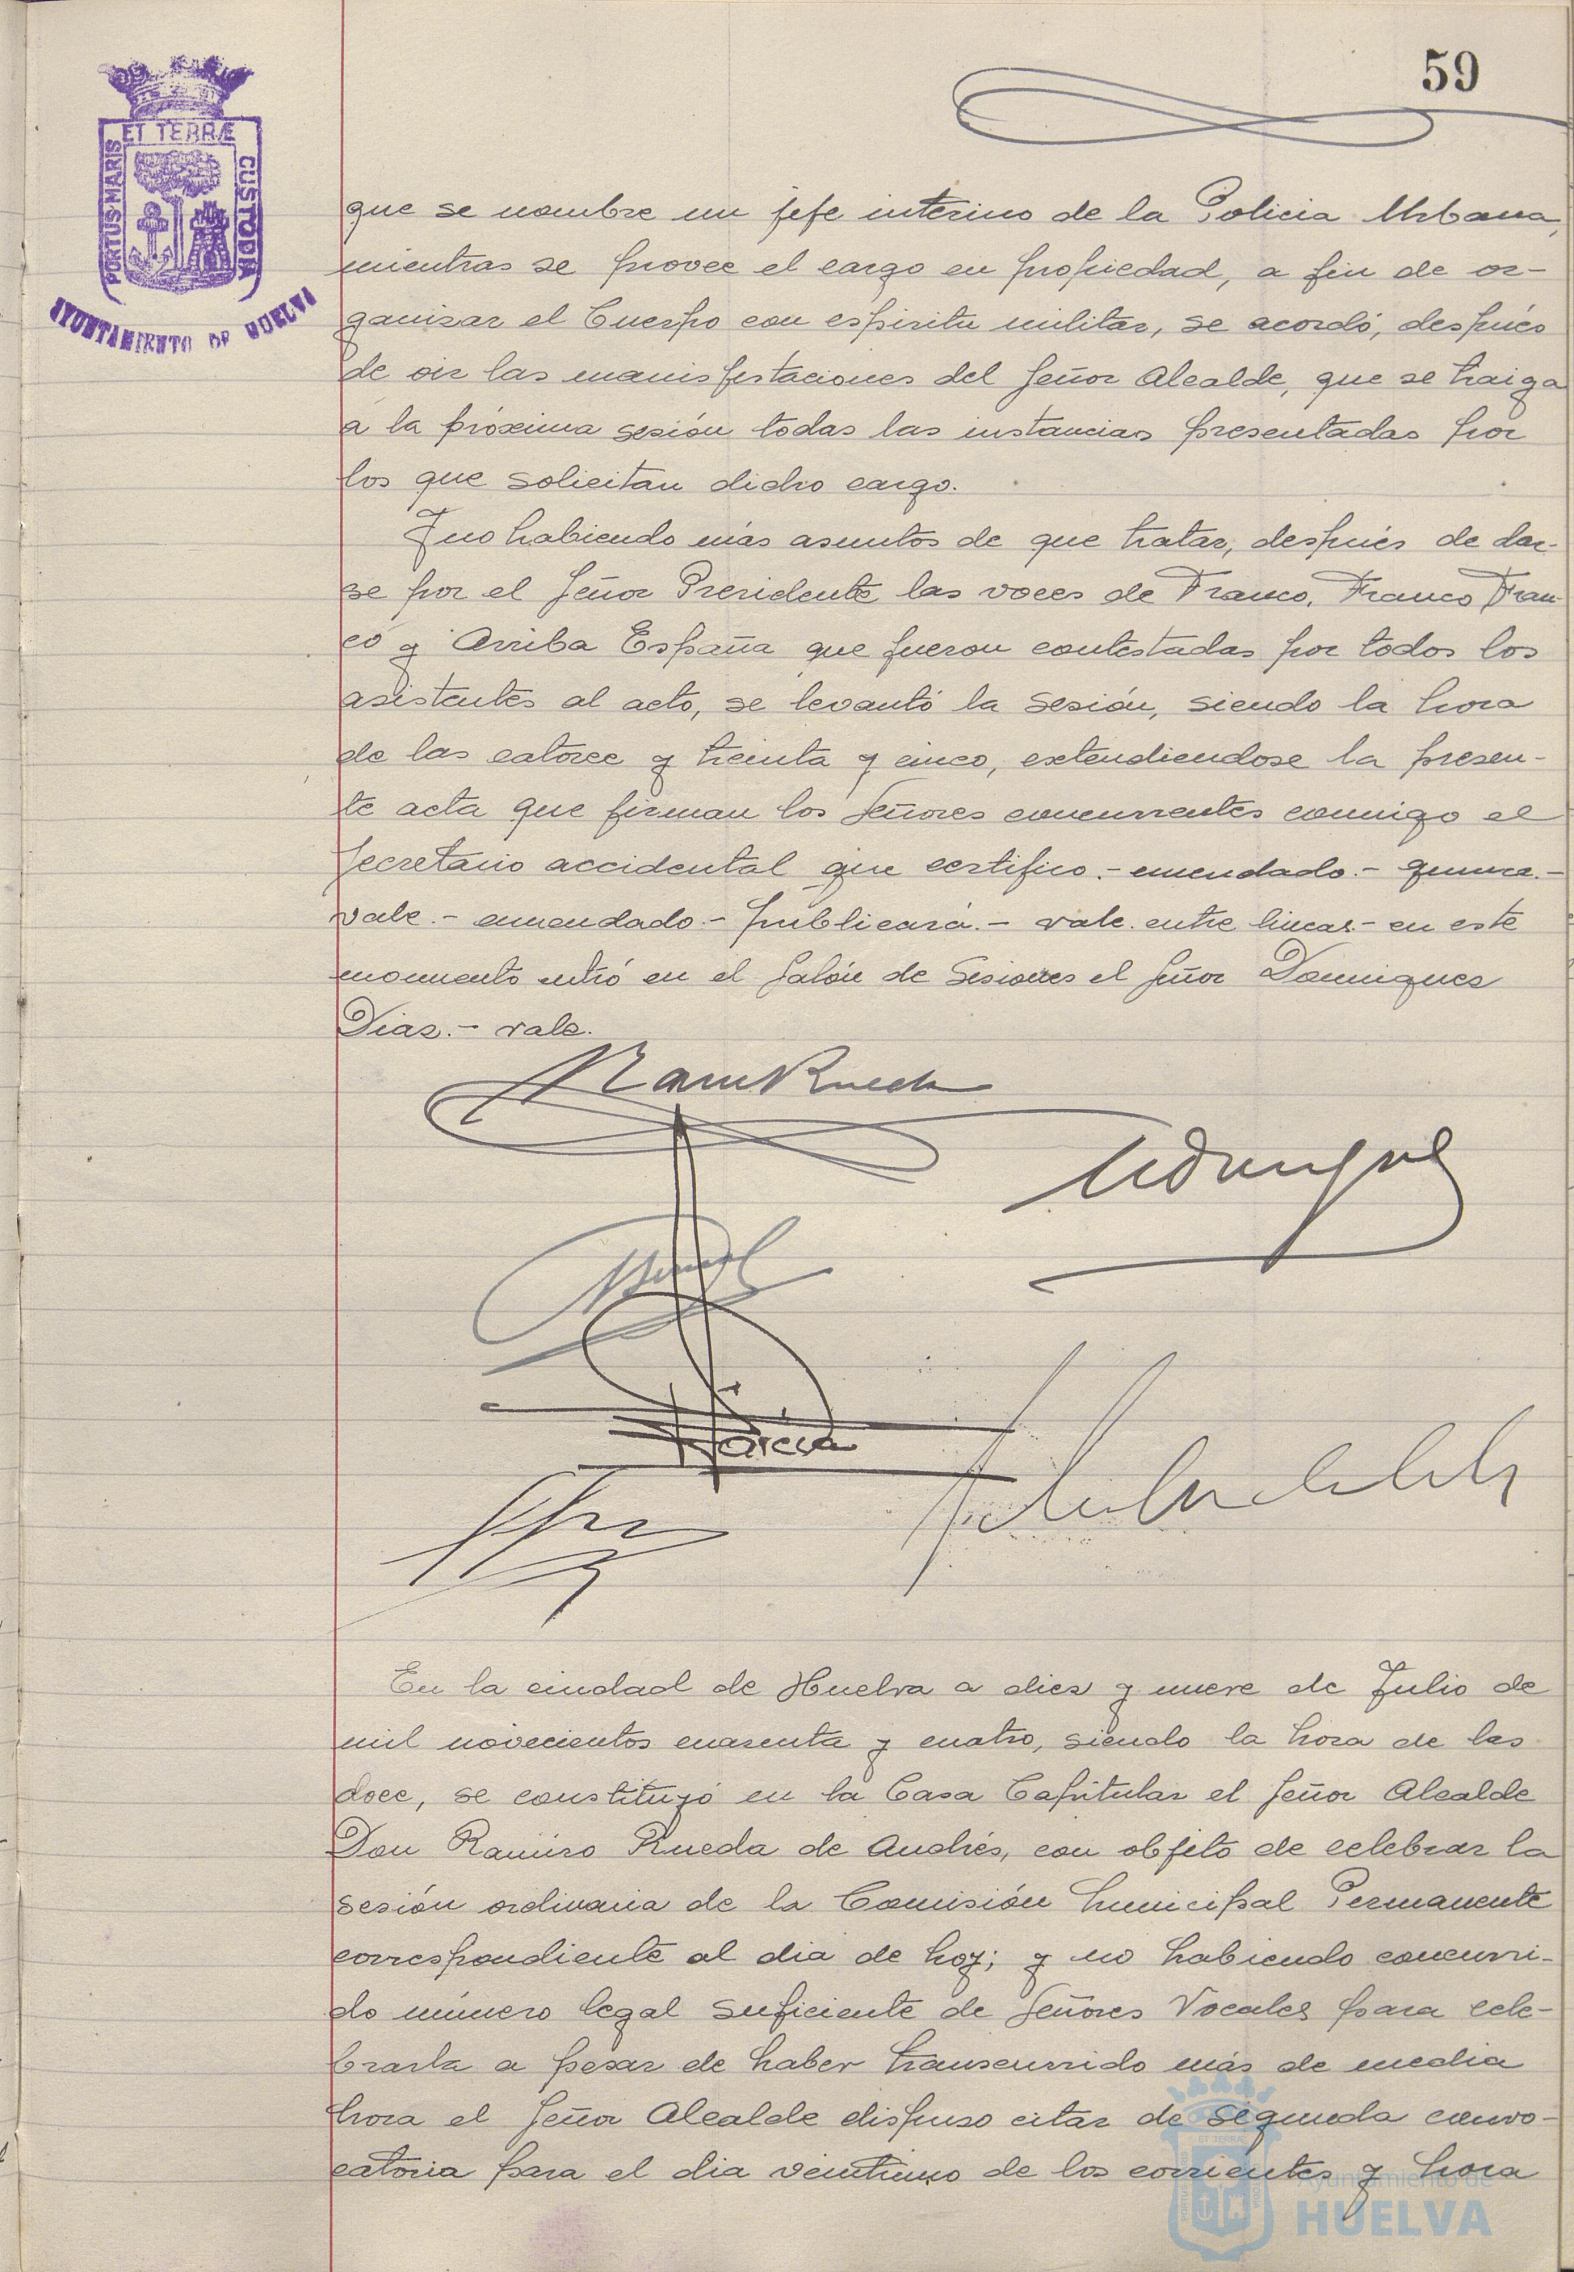 59
ET TERRÆ
PORTUS MARIS
CUSTODIA
AYUNTAMIENTO DE HUELVA
que se nombre un jefe interino de la Policia Urbana,
mientras se provee el cargo en propiedad, a fin de or-
ganizar el Cuerpo con espiritu militar, se acordó, después
de oir las manisfestaciones del Señor Alcalde, que se traiga
a la próxima sesión todas las instancias presentadas por
los que solicitan dicho cargo.
Y no habiendo más asuntos de que tratar, después de dar-
se por el Señor Presidente las voces de Franco, Franco Fran-
co y Arriba España que fueron contestadas por todos los
asistentes al acto, se levantó la sesión, siendo la hora
de las catorce y treinta y cinco, extendiendose la presen-
te acta que firman los Señores concurrentes conmigo el
Secretario accidental que certifico.- enmendado.-
vale.- enmendado.- publicará.- vale. entre lineas.- en este
momento entró en el Salón de Sesiones el Señor Dominguez
Diaz.- vale.
Ram Rueda
García
En la ciudad de Huelva a diez y nueve de Julio de
mil novecientos cuarenta y cuatro, siendo la hora de las
doce, se constituyó en la Casa Capitular el Señor Alcalde
Don Ramiro Rueda de Andrés, con objeto de celebrar la
sesión ordinaria de la Comisión Municipal Permanente
correspondiente al dia de hoy; y no habiendo concurri-
do número legal suficiente de Señores Vocales para cele-
brarla a pesar de haber transcurrido más de media
hora el Señor Alcalde dispuso citar de segunda convo-
catoria para el dia veintiuno de los corrientes y hora
Ayuntamiento de
HUELVA